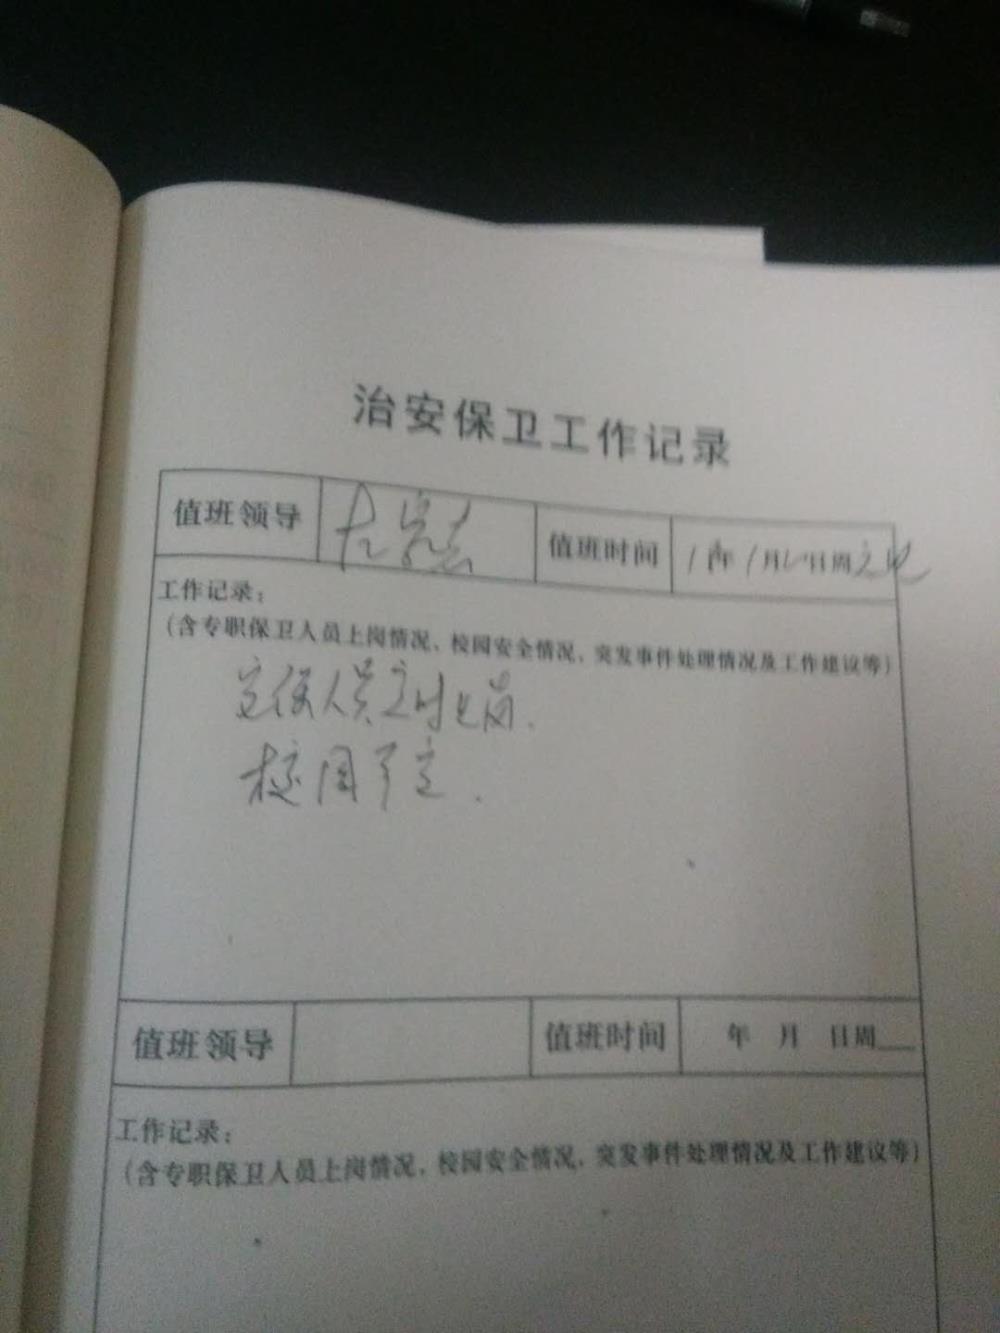 治安保卫工作记录
值班领导 值班时间 年1月 日周
工作记录：
（含专职保卫人员上岗情况、校园安全情况、突发事件处理情况及工作建议等）
安保人员 时上岗.
校园平安.
值班领导 值班时间 年 月 日周
工作记录：
（含专职保卫人员上岗情况、校园安全情况、突发事件处理情况及工作建议等）